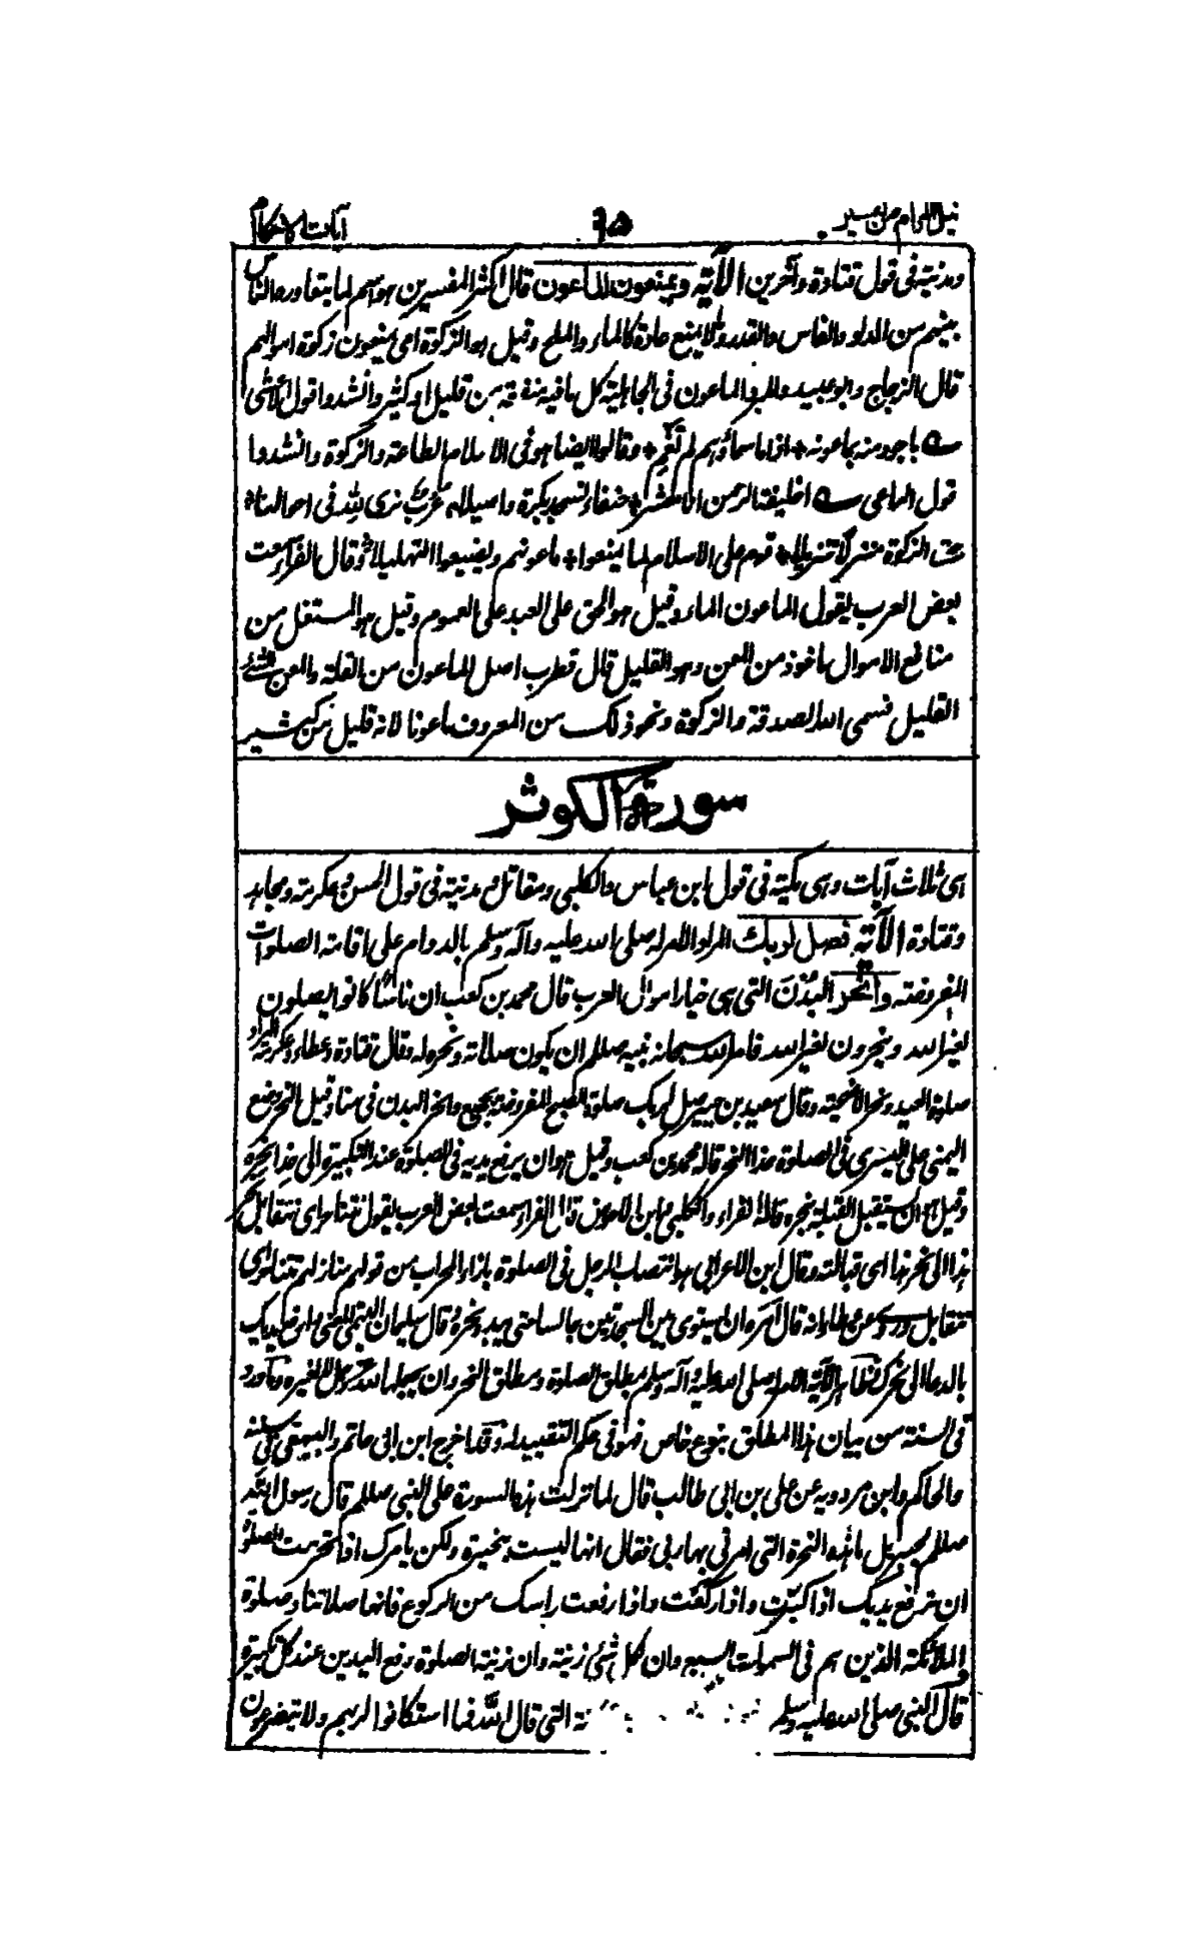 نيل المرام من تفسير ٦٥ آيات الاحكام
ومدنية فى قول قتادة وآخرين الآية ويمنعون الماعون قال اكثر المفسرين هو اسم لما يتعاوره الناس
بينهم من الدلو والفاس والقدر ولا يمنع عادة كالماء والملح وقيل هو الزكوة اى يمنعون زكوة اموالهم
قال الزجاج وابو عبيد والمبرد الماعون فى الجاهلية كل ما فيه منفعة من قليل او كثير وانشدوا قول الاعشى
باجود منه بماعونه * اذا ما سماؤهم لم تغم * وقالوا ايضا هو فى الاسلام الطاعة والزكوة وانشدوا
قول الراعى اخليفة الرحمن انا معشر * حنفاء نسجد بكرة واصيلا * عرب نرى لله فى اموالنا *
حق الزكوة منزلا تنزيلا * قوم على الاسلام لما يمنعوا * ماعونهم ويضيعوا التهليلا * وقال الفراء سمعت
بعض العرب يقول الماعون الماء وقيل هو الحق على العبد على العموم وقيل هو المستغل من
منافع الاموال ماخوذ من المعن وهو القليل قال قطرب اصل الماعون من القلة والمعن الشئ
القليل فسمى الله الصدقة والزكوة ونحو ذلك من المعروف ماعونا لانه قليل من كثير
سورة الكوثر
هى ثلاث آيات وهى مكية فى قول ابن عباس والكلبى ومقاتل ومدنية فى قول الحسن وعكرمة ومجاهد
وقتادة الآية فصل لربك المراد الامر له صلى الله عليه وآله وسلم بالدوام على اقامة الصلوات
المفروضة وانحر البدن التى هى خيار اموال العرب قال محمد بن كعب ان ناسا كانوا يصلون
لغير الله وينحرون لغير الله فامر الله سبحانه نبيه صلعم ان يكون صلاته ونحره له وقال قتادة وعطاء وعكرمة المراد
صلوة العيد ونحر الاضحية وقال سعيد بن جبير صل لربك صلوة الصبح المفروضة بجمع وانحر البدن فى منا وقيل النحر وضع
اليمنى على اليسرى فى الصلوة حذاء النحر قاله محمد بن كعب وقيل هو ان يرفع يديه فى الصلوة عند التكبيرة الى حذا نحره
وقيل هو ان يستقبل القبلة بنحره قاله الفراء والكلبى وابو الاحوص قال الفراء سمعت بعض العرب يقول نتناحر اى نتقابل نحر
هذا الى نحر هذا اى قبالته وقال ابن الاعرابى هو انتصاب الرجل فى الصلوة بازاء المحراب من قولهم منازلهم تتناحر اى
تتقابل وروى عن عطاء انه قال امره ان يستوى بين السجدتين جالسا حتى يبدو نحره وقال سليمان التيمى المعنى وارفع يديك
بالدعاء الى نحرك وظاهر الآية الامر له صلى الله عليه وآله وسلم بمطلق الصلوة ومطلق النحر وان يجعلهما لله عز وجل لا لغيره وما ورد
فى السنة من بيان هذا المطلق بنوع خاص فهو فى حكم التقييد له وقد اخرج ابن ابى حاتم والبيهقى فى سننه
والحاكم وابن مردويه عن على بن ابى طالب قال لما نزلت هذه السورة على النبى صلعم قال رسول الله
صلعم لجبريل ما هذه النحرة التى امرنى بها ربى فقال انها ليست بنحيرة ولكن يامرك اذا تحرمت للصلوة
ان ترفع يديك اذا كبرت واذا ركعت واذا رفعت راسك من الركوع فانها صلاتنا وصلوة
الملائكة الذين هم فى السموات السبع وان لكل شئ زينة وان زينة الصلوة رفع اليدين عند كل تكبيرة
قال النبى صلى الله عليه وسلم التى قال الله فما استكانوا لربهم ولا يتضرعون